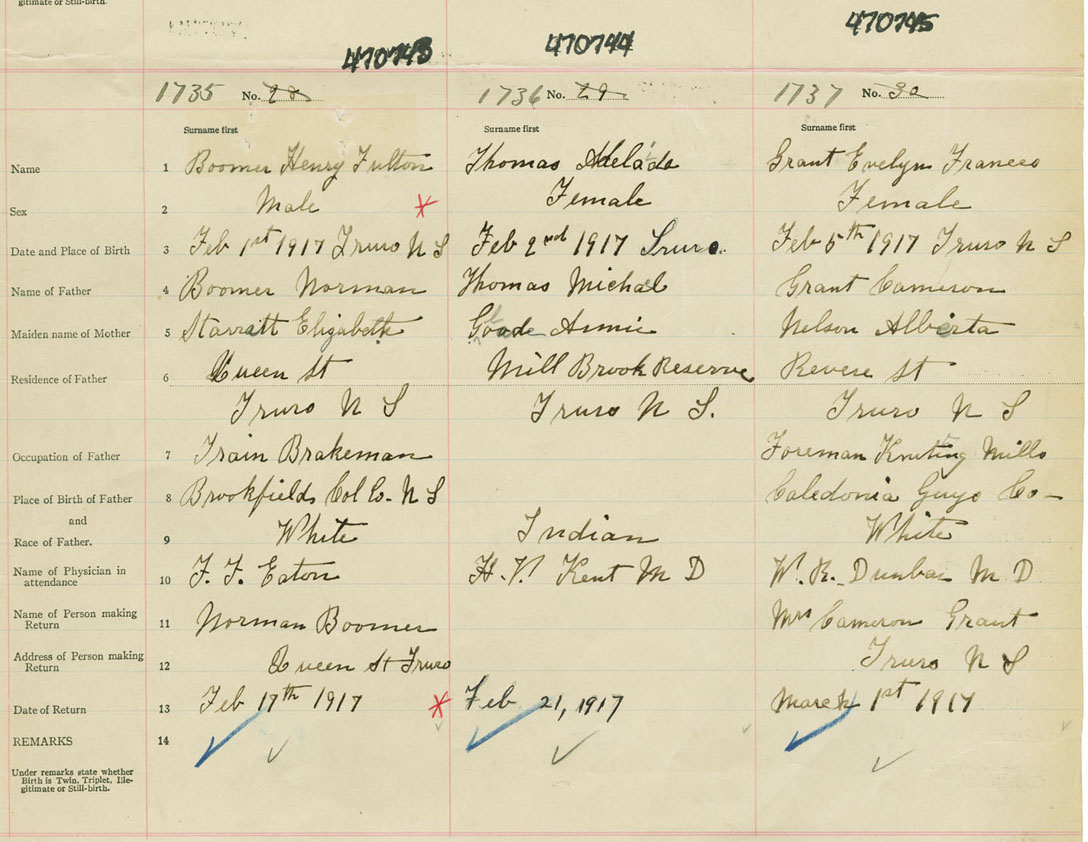 gitimate or Still-birth.
470743 470744 470745
1735 No. 28 1736 No. 29 1737 No. 30
Surname first Surname first Surname first
Name 1 Boomer Henry Fulton Thomas Adelaide Grant Evelyn Frances
Sex 2 Male Female Female
Date and Place of Birth 3 Feb 1st 1917 Truro N S Feb 2nd 1917 Truro. Feb 5th 1917 Truro N S
Name of Father 4 Boomer Norman Thomas Michael Grant Cameron
Maiden name of Mother 5 Starratt Elizabeth Annie Nelson Alberta
Residence of Father 6 Queen St Mill Brook Reserve Revere St
Truro N S Truro N S. Truro N S
Occupation of Father 7 Train Brakeman Foreman Knitting Mills
Place of Birth of Father 8 Brookfields Col Co- N S Caledonia Guys Co-
and
Race of Father. 9 White Indian White
Name of Physician in
attendance 10 F. F. Eaton H. V. Kent M D W. R. Dunbar M D
Name of Person making
Return 11 Norman Boomer Mrs Cameron Grant
Address of Person making
Return 12 Queen St Truro Truro N S
Date of Return 13 Feb 17th 1917 Feb 21, 1917 March 1st 1917
REMARKS 14
Under remarks state whether
Birth is Twin, Triplet, Ille-
gitimate or Still-birth.